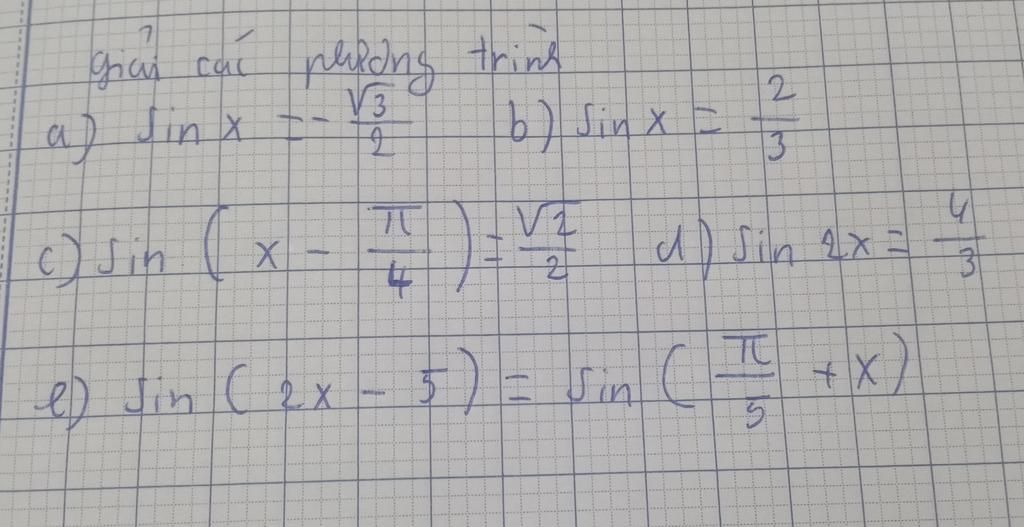 giải các phương trình
a) sin x = -√3/2 b) sin x = 2/3
c) sin (x - π/4) = √2/2 d) sin 2x = 4/3
e) sin (2x - 5) = sin (π/5 + x)